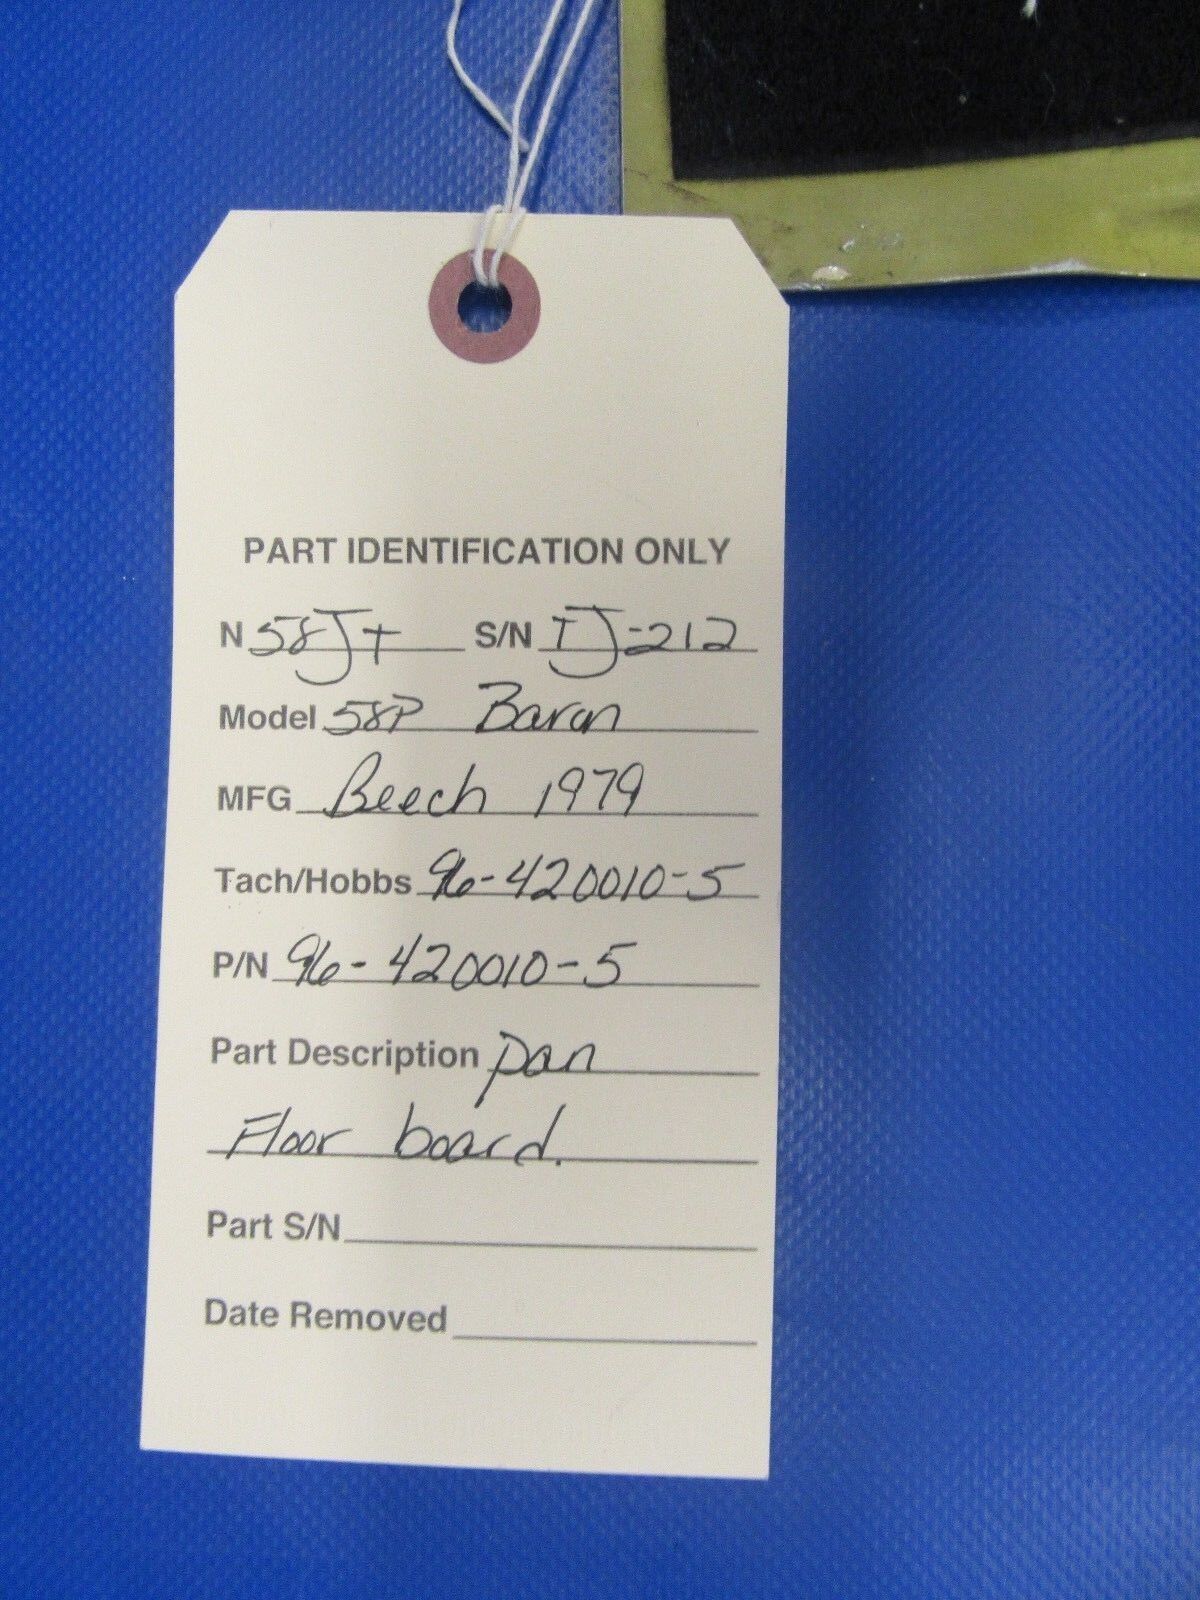 PART IDENTIFICATION ONLY
N 58JT S/N TJ-212
Model 58P Baron
MFG Beech 1979
Tach/Hobbs 96-420010-5
P/N 96-420010-5
Part Description pan
Floor board.
Part S/N
Date Removed